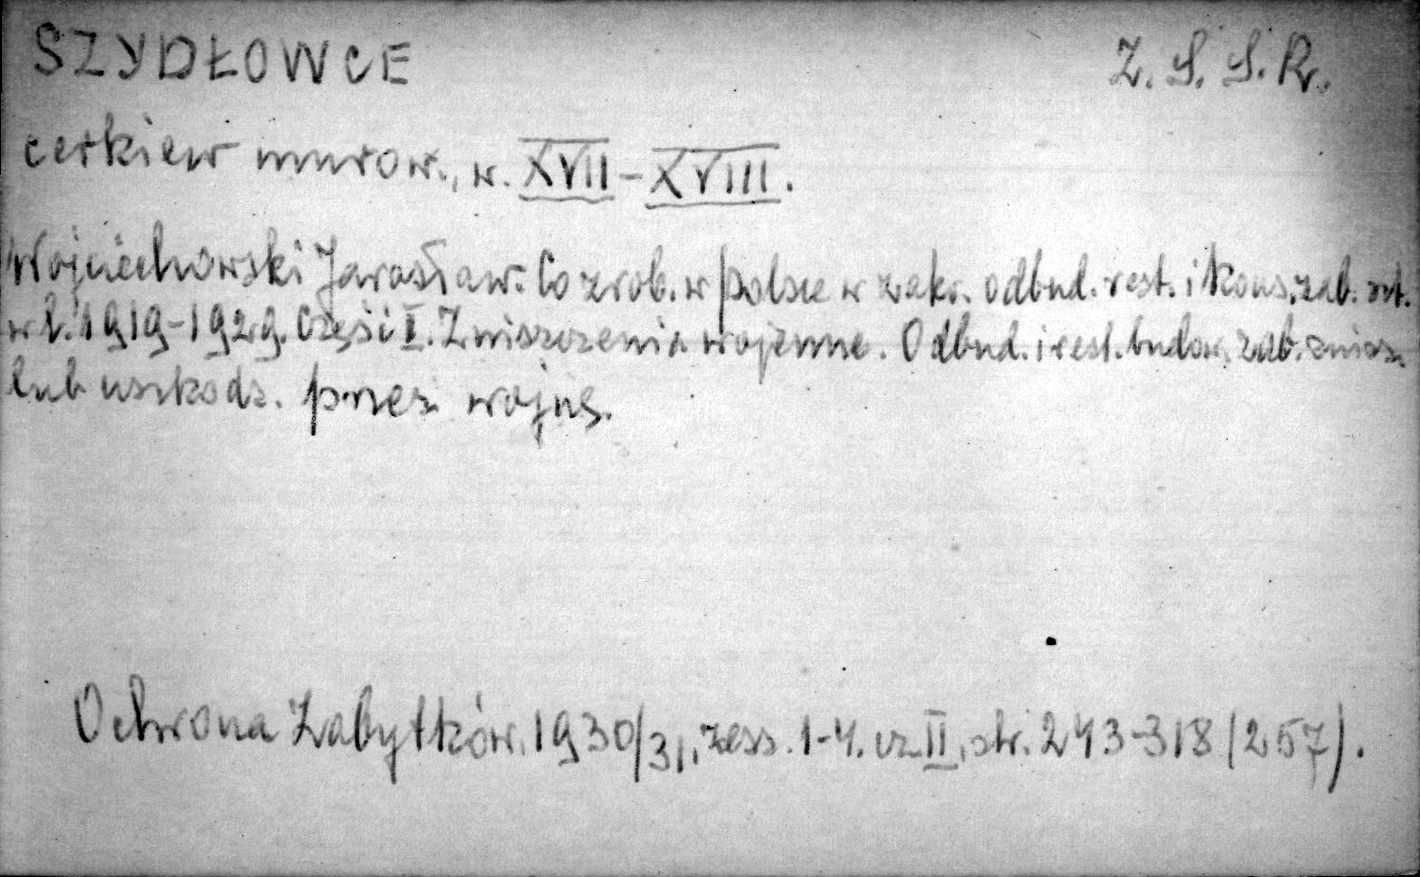 SZYDŁOWCE
Z. S. S. R.
cerkiew murow., w. XVII - XVIII.
Wojciechowski Jarosław. Co zrob. w Polsce w zakr. odbud. rest. i kons. zab. szt.
w l. 1919-1929. Część I. Zniszczenia wojenne. Odbud. i rest. budow. zab. zniszcz.
lub uszkodz. przez wojnę.
Ochrona Zabytków. 1930/31, zesz. 1-4. cz. II, str. 243-318 (257).